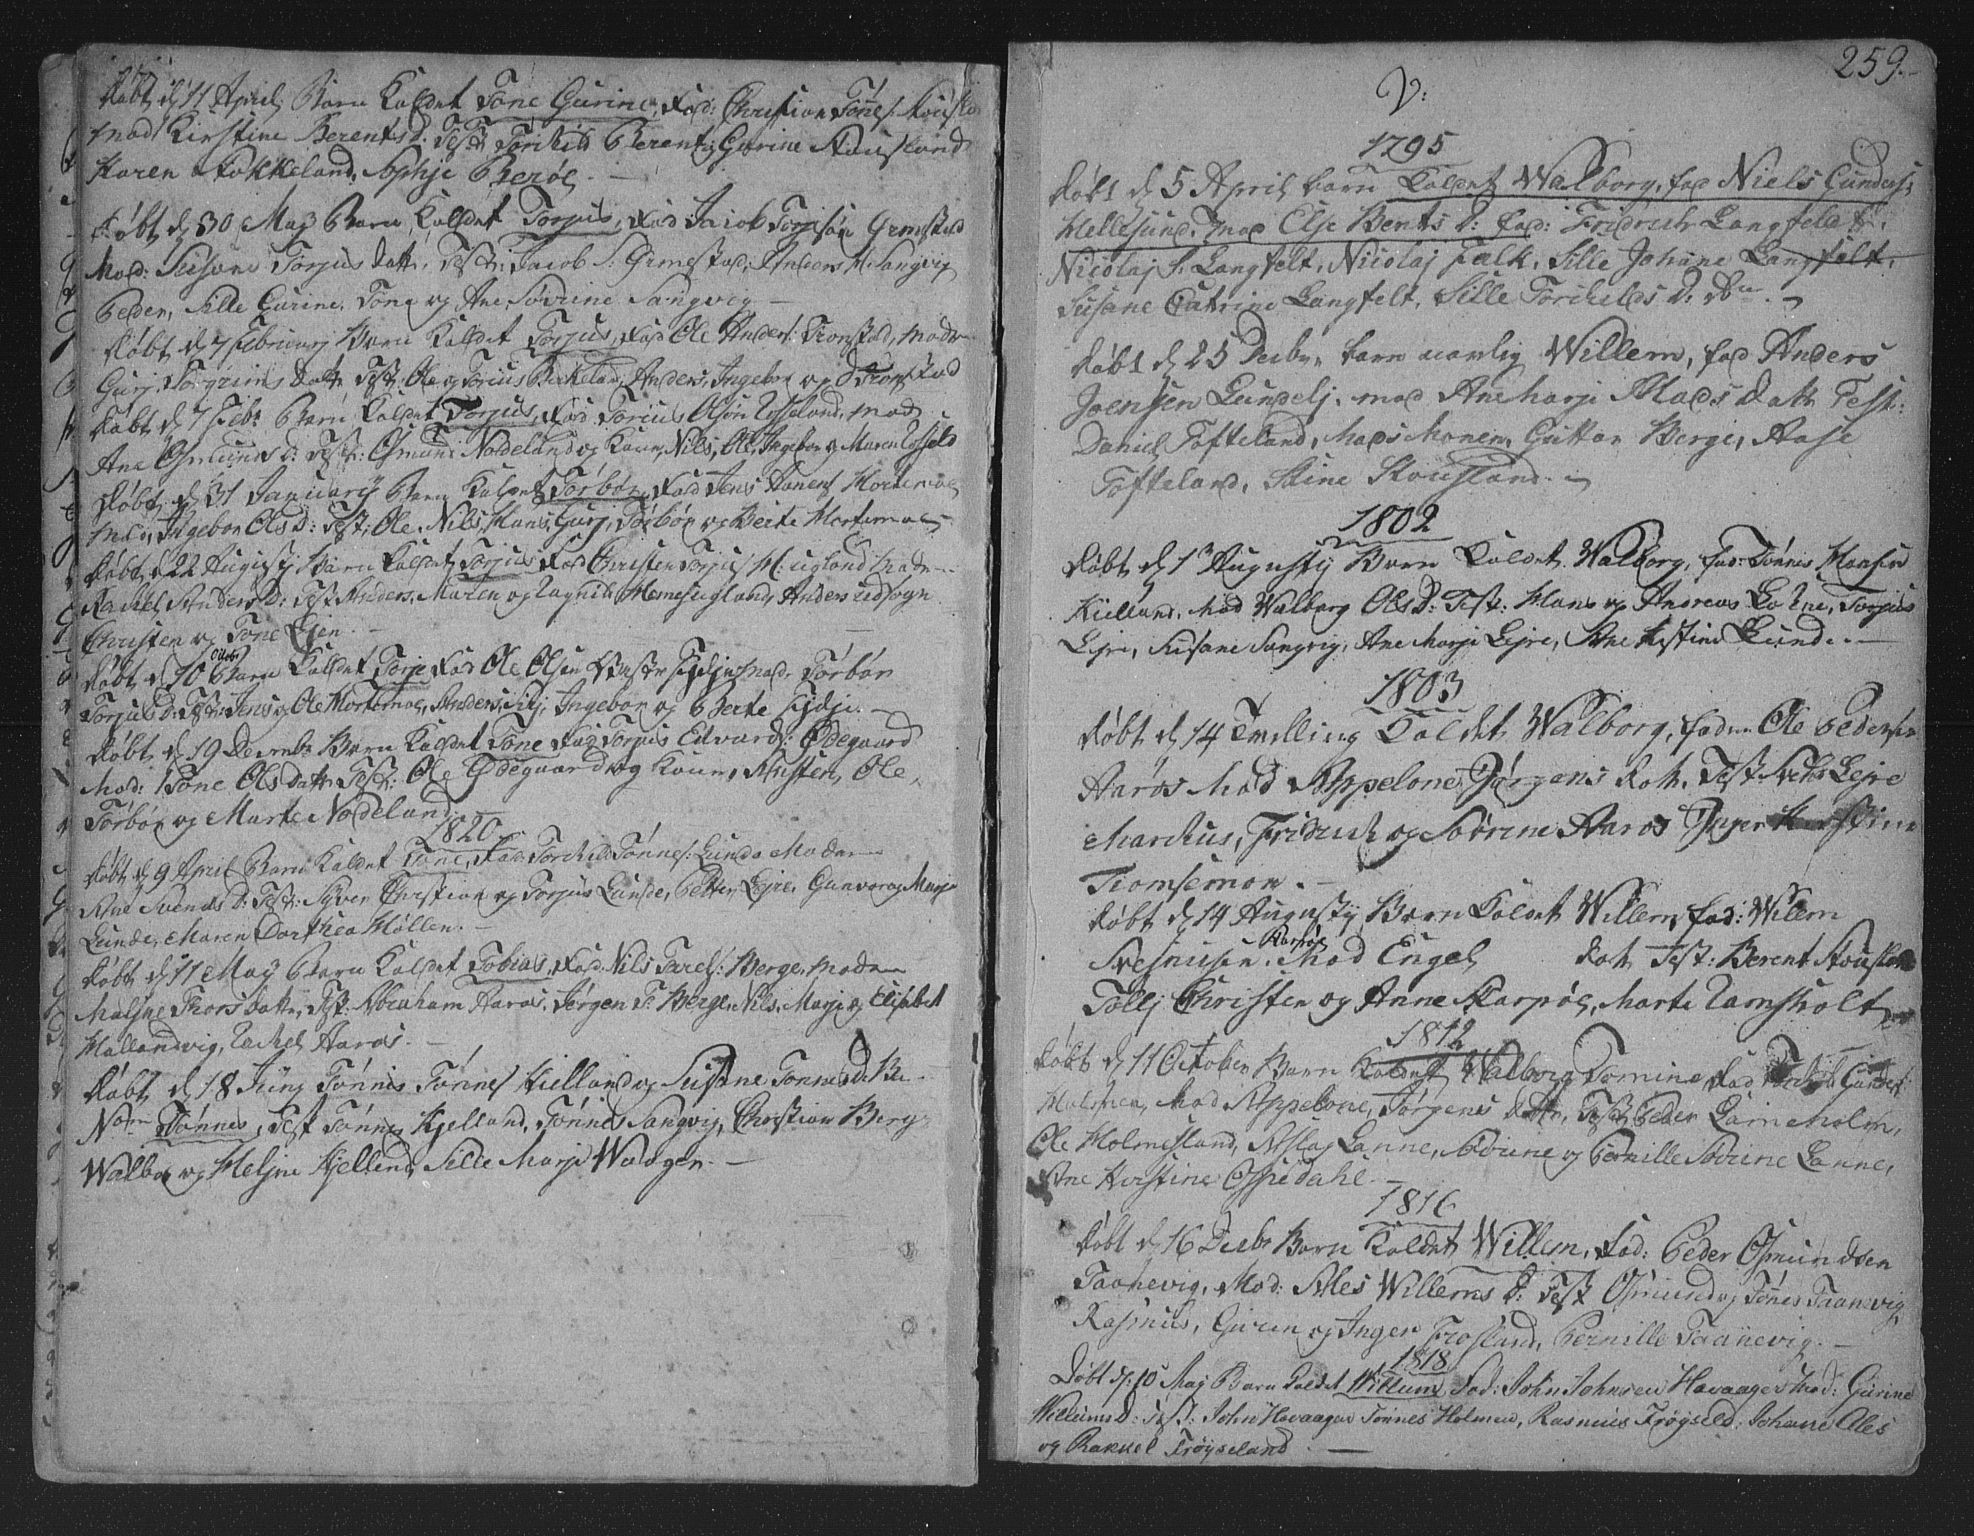 Døbt d. 11 April Barn Kaldet Tone Gurine, Fad: Christian Tønnes.
Mod: Kirstine Berents D: Test: Torkild Berents, Gurine Stousland
Karen Stokkeland, Sophje Berøe. —
Døbt d. 30 May Barn Kaldet Torjus, Fad Jacob Torjusøn Grmestad
Mod: Susane Torjus Datter, Test: Jacob S. Grimestad, Anders M. Sangvig
Peder, Sille Gurine, Tone og Ane Sørine Sangvig —
Døbt d. 7 Februarj Barn Kaldet Torjus, Fad Ole Anders: Tronstad, Moder
Gurj Torgrims Datt. Test: Ole og Torjus Birkeland, Anders, Ingebor og Tronstad
Døbt d. 7 Febr. Barn Kaldet Torjus, Fad Torjus Olsøn, Mod
Ane Osmunds D: Test: Osmund Nodeland og Kone, Nils, Ole, Ingebor og Maren
Døbt d. 31 Januarij Barn Kaldet Torbor, Fad Jens Hansen Mortemoe
Mod, Ingebor Ols D: Test: Ole, Nils, Hans, Gurj, Torbor og Berte Mortemoe
Døbt d. 22 Augustj Barn Kaldet Torjus Fad Christen Torjus: H. ugland Moder
Rachel Anders D: Test: Anders, Maren og Ragnild Homesugland, Anders
Christen og Tone Eien. —
Døbt d. 10 Octobr Barn Kaldet Torje Fad Ole Olsen Fidje Mod: Torbor
Torjus D: Test: Jens og Ole Mortemoe, Anders, Silj, Ingebor og Berte Fidje. —
Døbt d. 19 Decembr Barn Kaldet Tone Fad Torjus Edvards: Ødegaard
Mod: Tone Ols Datter Test: Ole Ødegaard og Kone, Kristen, Ole,
Torbor og Marte Nodeland.
1820
Døbt d. 9 April Barn Kaldet Tone, Fad: Torkild Tønnes: Lunde Moder
Ane Svends D: Test: Syver Christian og Torjus Lunde, Petter Lejre, Gunvor og Marje
Lunde, Maren Dorthea Møllen. —
Døbt d. 11 May Barn Kaldet Tobias, Fad: Nils Tarels: Berge, Moder
Malene Thors Datter, Test: Abraham Aaros, Jørgen T: Berge, Nils, Marje og Elisabet
Hallandvig, Rachel Aaros. —
Døbt d. 18 Juny Tønnis Tønnes: Kielland og Susane Tønnes D. Bn
Nom Tønnes, Test Tønnes Kjelland, Tønnes Sangvig, Christian Berg
Walbor og Heljne Kjelland, Sille Marje Waagen. —
259.
V:
1795
Døbt d. 5 April, barn Kaldet Walborg, fad Niels Gunders:
Hellesund, Mod Else Bents D: fad: Fridrich Langfeldt.
Nicolaj S. Langfelt, Nicolaj Falk, Sille Johane Langfelt.
Susane Catrine Langfelt, Sille Torchelds D:
Døbt d. 25 Decbr. barn navnlig Willem, fad Anders
Joensen Lundelj. mod Ane Marje Mads Datt Test:
Daniel Tofteland, Mads Monen, Guttor Berge, Aase
Tofteland, Stine Stousland. —
1802
Døbt d. 1st Augustj Barn Kaldet Walborg, fad: Tønnes Hansen
Kielland. Mod Walborg Ols D: Test: Hans og Andreas Lohne, Torjus
Lejre, Susane Sangvig, Ane Marje Lejre, Ane Kistine Lund. —
1803
Døbt d. 14 Tvelling Kaldet Walborg, fader Ole Pedersen
Aarøs Mod Appelone Jørgens Dotr. Test Lejre
Marchus, Fridrich og Sørine Aaros Inger Kirstine
Tromsemoe. —
Døbt d. 14 Augustj Barn Kaldet Willem, fad: Willem
Svennisen Karpøe Mod Engel Dotr Test: Berent Stousland
Tollj Christen og Anne Karpøe, Marte Ramsholt
1812
Døbt d. 11 October Barn Kaldet Walborg Tomine, Fad Torkild Gunders:
Holmen, Mod Appelone, Jørgens Datter, Test Peder Holm,
Ole Holmesland, Aslag Lanne, Sørine og Pernille Sørine Lanne,
Ane Kirstine Ossedahl. —
1816
Døbt d. 16 Decbr Barn Kaldet Willem, Fad: Peder Osmundsen
Taanevig, Mod: Ales Willems D: Test Osmund og Tønes Taanevig
Rasmus, Guren og Inger Frosland, Pernille Taanevig. —
1818
Døbt d: 10 Maj Barn Kaldet Willum, Fad: John Johnsen Havaager Mod: Gurine
Willums D: Test: John Havaager Tønnes Holmen, Rasmus Trøyseld: Johane Ales
og Rakkel Trøyseland. —